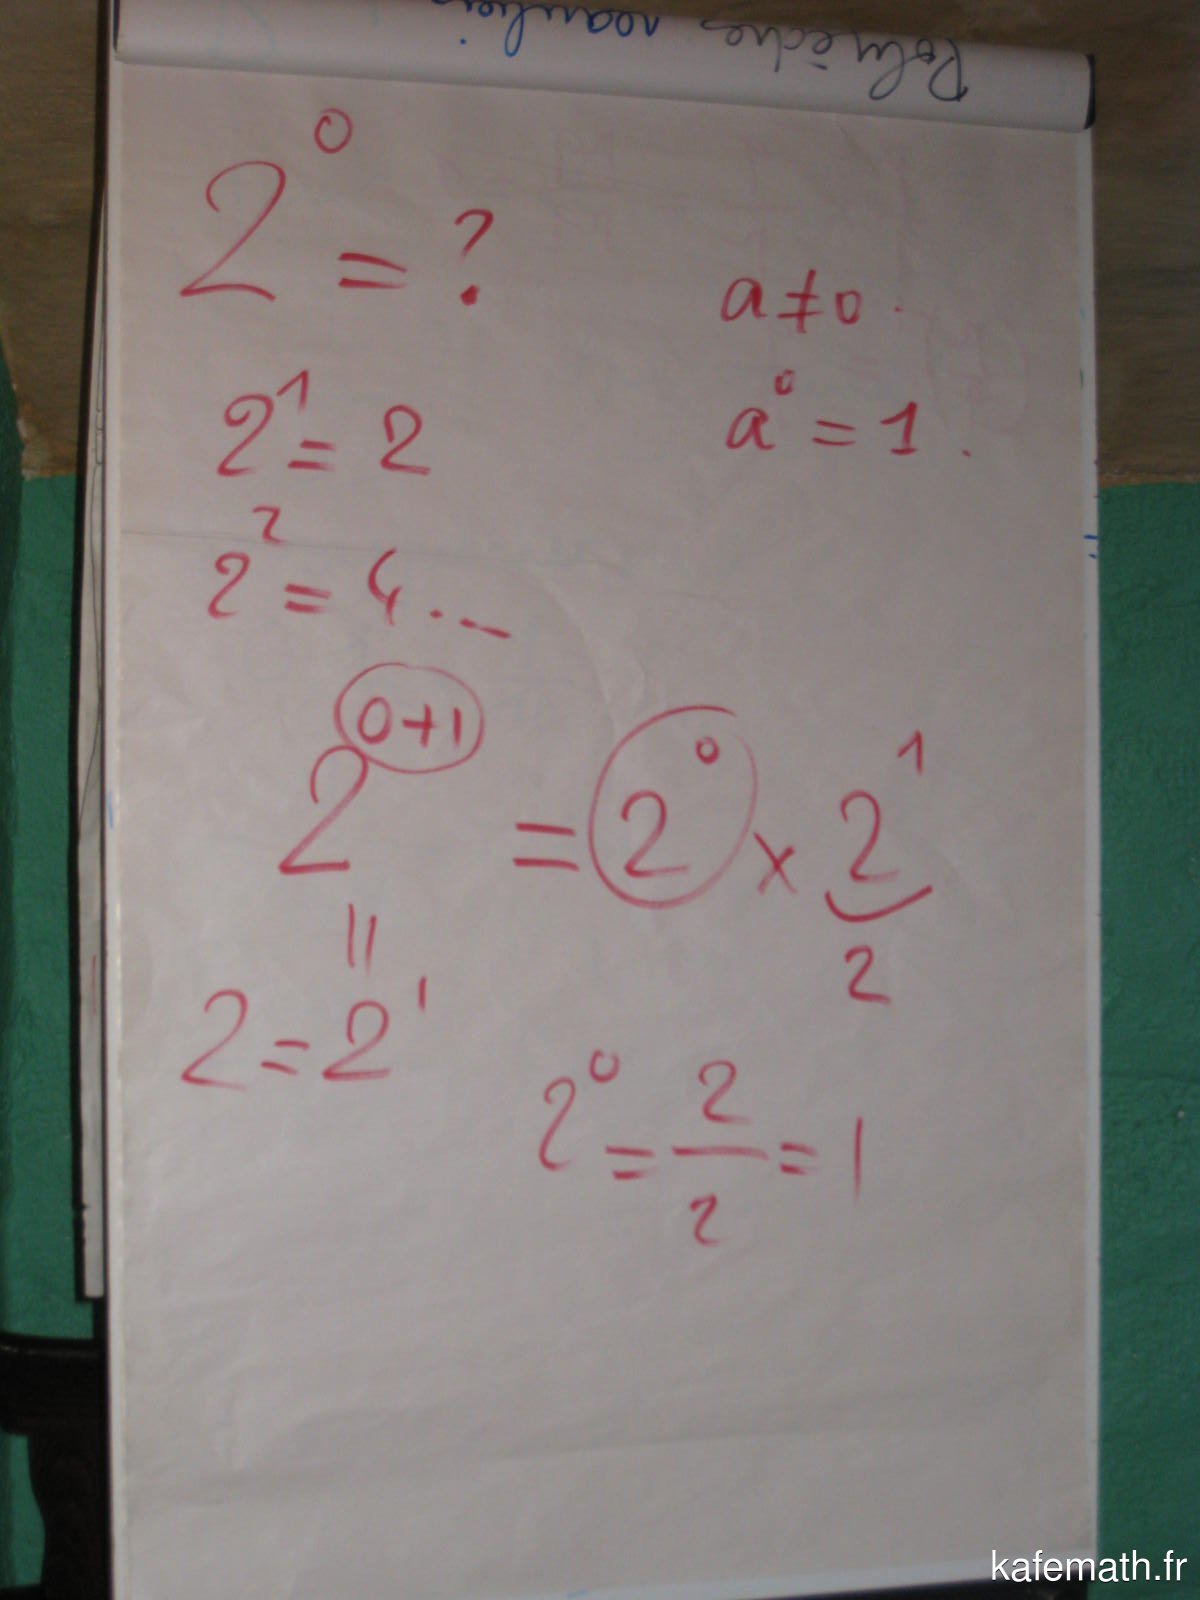 Polyèdres réguliers
2⁰ = ?
a ≠ 0.
2¹ = 2
a⁰ = 1.
2² = 4...
2⁰⁺¹ = 2⁰ × 2¹
||
2
2 = 2¹
2⁰ = 2/2 = 1
kafemath.fr